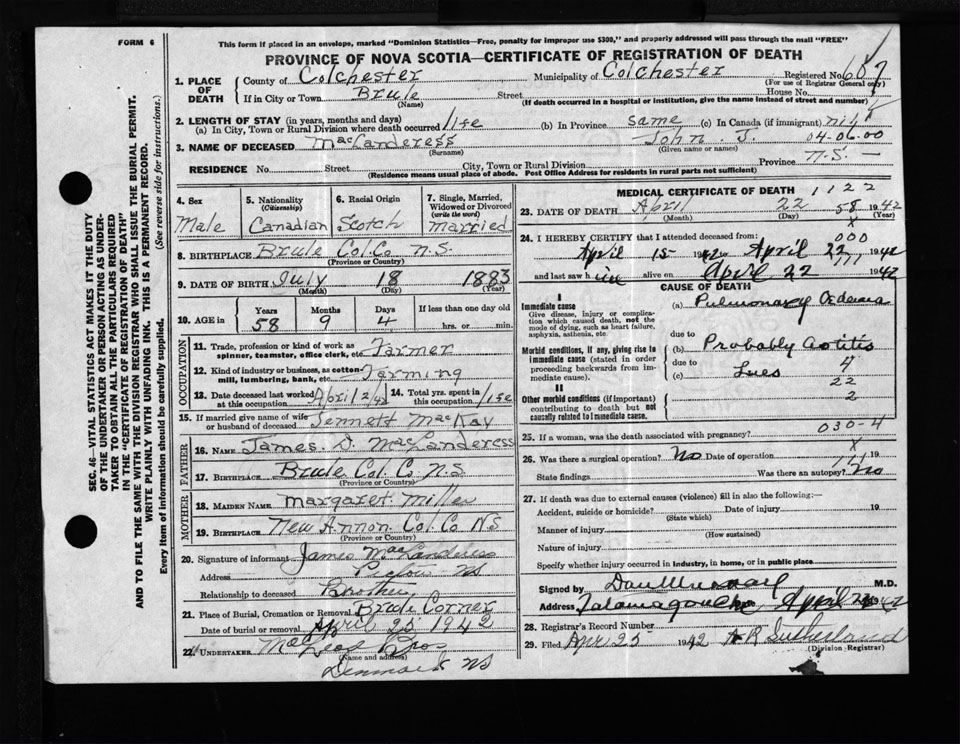 FORM 6
This form if placed in an envelope, marked "Dominion Statistics—Free, penalty for improper use $300," and properly addressed will pass through the mail "FREE"
PROVINCE OF NOVA SCOTIA—CERTIFICATE OF REGISTRATION OF DEATH
SEC. 46—VITAL STATISTICS ACT MAKES IT THE DUTY
OF THE UNDERTAKER OR PERSON ACTING AS UNDER-
TAKER TO OBTAIN ALL THE PARTICULARS REQUIRED
IN THE "CERTIFICATE OF REGISTRATION OF DEATH"
AND TO FILE THE SAME WITH THE DIVISION REGISTRAR WHO SHALL ISSUE THE BURIAL PERMIT.
WRITE PLAINLY WITH UNFADING INK. THIS IS A PERMANENT RECORD.
Every item of information should be carefully supplied. (See reverse side for instructions.)
1. PLACE OF DEATH
County of Colchester Municipality of Colchester Registered No. 607
(For use of Registrar General only)
If in City or Town Brule Street House No.
(Name) (If death occurred in a hospital or institution, give the name instead of street and number)
2. LENGTH OF STAY (in years, months and days)
(a) In City, Town or Rural Division where death occurred life (b) In Province same (c) In Canada (if immigrant) nil
3. NAME OF DECEASED MacLanderess John J. 04-06-00
(Surname) (Given name or names)
RESIDENCE No. Street City, Town or Rural Division Province N.S. —
(Residence means usual place of abode. Post Office Address for residents in rural parts not sufficient)
4. Sex Male
5. Nationality (Citizenship) Canadian
6. Racial Origin Scotch
7. Single, Married, Widowed or Divorced (write the word) Married
8. BIRTHPLACE Brule Col. Co. N.S.
(Province or Country)
9. DATE OF BIRTH July 18 1883
(Month) (Day) (Year)
10. AGE in Years Months Days If less than one day old
58 9 4 hrs. or min.
OCCUPATION
11. Trade, profession or kind of work as spinner, teamster, office clerk, etc. Farmer
12. Kind of industry or business, as cotton-mill, lumbering, bank, etc. Farming
13. Date deceased last worked at this occupation April 2/42 14. Total yrs. spent in this occupation life
15. If married give name of wife or husband of deceased Jennett MacKay
FATHER
16. NAME James D. MacLanderess
17. BIRTHPLACE Brule Col. Co N.S
(Province or Country)
MOTHER
18. MAIDEN NAME Margaret Miller
19. BIRTHPLACE New Annon Col. Co NS
(Province or Country)
20. Signature of informant James MacLanderess
Address Pictou NS
Relationship to deceased Brother
21. Place of Burial, Cremation or Removal Brule Corner
Date of burial or removal April 25 1942
22. UNDERTAKER Bros
(Name and address)
Denmark NS
MEDICAL CERTIFICATE OF DEATH 1122
23. DATE OF DEATH April 22 58 1942
(Month) (Day) (Year)
x
24. I HEREBY CERTIFY that I attended deceased from: 000
April 15 1942 to April 22 1942
111
and last saw him alive on April 22 1942
CAUSE OF DEATH
I
Immediate cause
Give disease, injury or complication which caused death, not the mode of dying, such as heart failure, asphyxia, asthenia, etc.
(a) Pulmonary Oedema
due to
Morbid conditions, if any, giving rise to immediate cause (stated in order proceeding backwards from immediate cause).
(b) Probably Aotitis
due to 4
(c) Lues
22
II
Other morbid conditions (if important) contributing to death but not causally related to immediate cause. 2
25. If a woman, was the death associated with pregnancy? 030-4
x
26. Was there a surgical operation? No Date of operation
State findings Was there an autopsy? No
27. If death was due to external causes (violence) fill in also the following:—
Accident, suicide or homicide? Date of injury 19
(State which)
Manner of injury
(How sustained)
Nature of injury
Specify whether injury occurred in industry, in home, or in public place
Signed by Dan Murray M.D.
Address Tatamagouche April 1942
28. Registrar's Record Number
29. Filed Apr 25 1942 A R Sutherland
(Division Registrar)